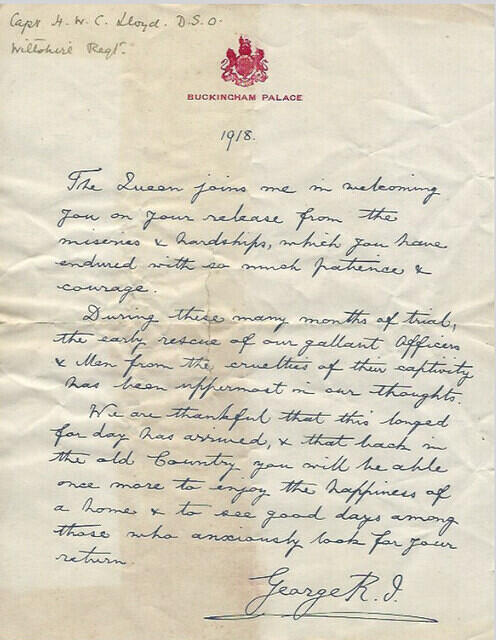 Capt H. W. C. Lloyd. D.S.O.
Wiltshire Regt.
BUCKINGHAM PALACE
1918.
The Queen joins me in welcoming
you on your release from the
miseries & hardships, which you have
endured with so much patience &
courage.
During these many months of trial,
the early rescue of our gallant Officers
& Men from the cruelties of their captivity
has been uppermost in our thoughts.
We are thankful that this longed
for day has arrived, & that back in
the old Country you will be able
once more to enjoy the happiness of
a home & to see good days among
those who anxiously look for your
return.
George R.I.